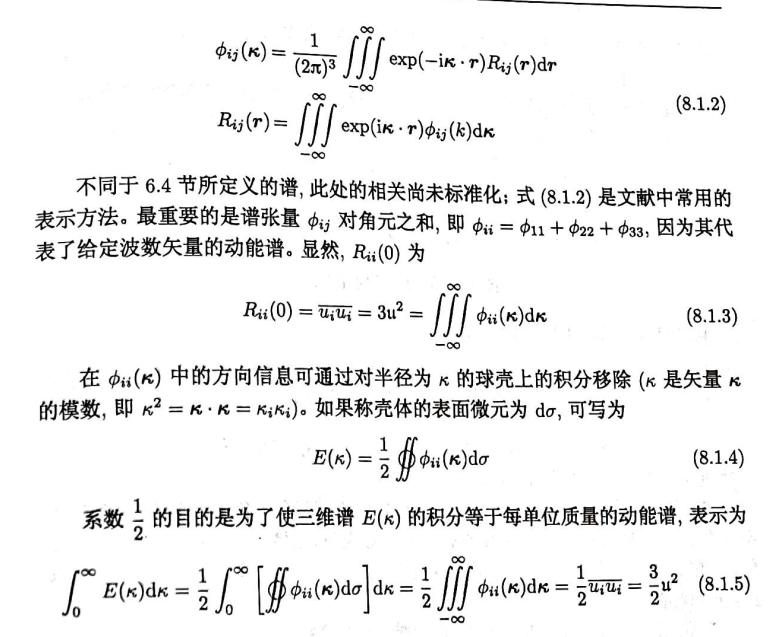 ϕᵢⱼ(κ) = 1/(2π)³ ∭_{−∞}^{∞} exp(−iκ · r)Rᵢⱼ(r)dr
(8.1.2)
Rᵢⱼ(r) = ∭_{−∞}^{∞} exp(iκ · r)ϕᵢⱼ(k)dκ
不同于 6.4 节所定义的谱, 此处的相关尚未标准化; 式 (8.1.2) 是文献中常用的
表示方法。最重要的是谱张量 ϕᵢⱼ 对角元之和, 即 ϕᵢᵢ = ϕ₁₁ + ϕ₂₂ + ϕ₃₃, 因为其代
表了给定波数矢量的动能谱。显然, Rᵢᵢ(0) 为
Rᵢᵢ(0) = \overline{uᵢuᵢ} = 3u² = ∭_{−∞}^{∞} ϕᵢᵢ(κ)dκ (8.1.3)
在 ϕᵢᵢ(κ) 中的方向信息可通过对半径为 κ 的球壳上的积分移除 (κ 是矢量 κ
的模数, 即 κ² = κ · κ = κᵢκᵢ)。如果称壳体的表面微元为 dσ, 可写为
E(κ) = 1/2 ∯ ϕᵢᵢ(κ)dσ (8.1.4)
系数 1/2 的目的是为了使三维谱 E(κ) 的积分等于每单位质量的动能谱, 表示为
∫₀^∞ E(κ)dκ = 1/2 ∫₀^∞ [∯ ϕᵢᵢ(κ)dσ] dκ = 1/2 ∭_{−∞}^{∞} ϕᵢᵢ(κ)dκ = 1/2 \overline{uᵢuᵢ} = 3/2 u² (8.1.5)